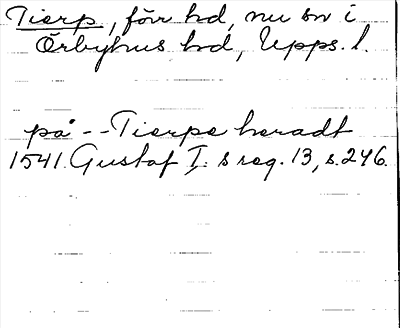 Tierp, förr hd, nu sn i
Örbyhus hd, Upps. l.
på -- Tierps heradt
1541. Gustaf I:s reg. 13, s. 246.